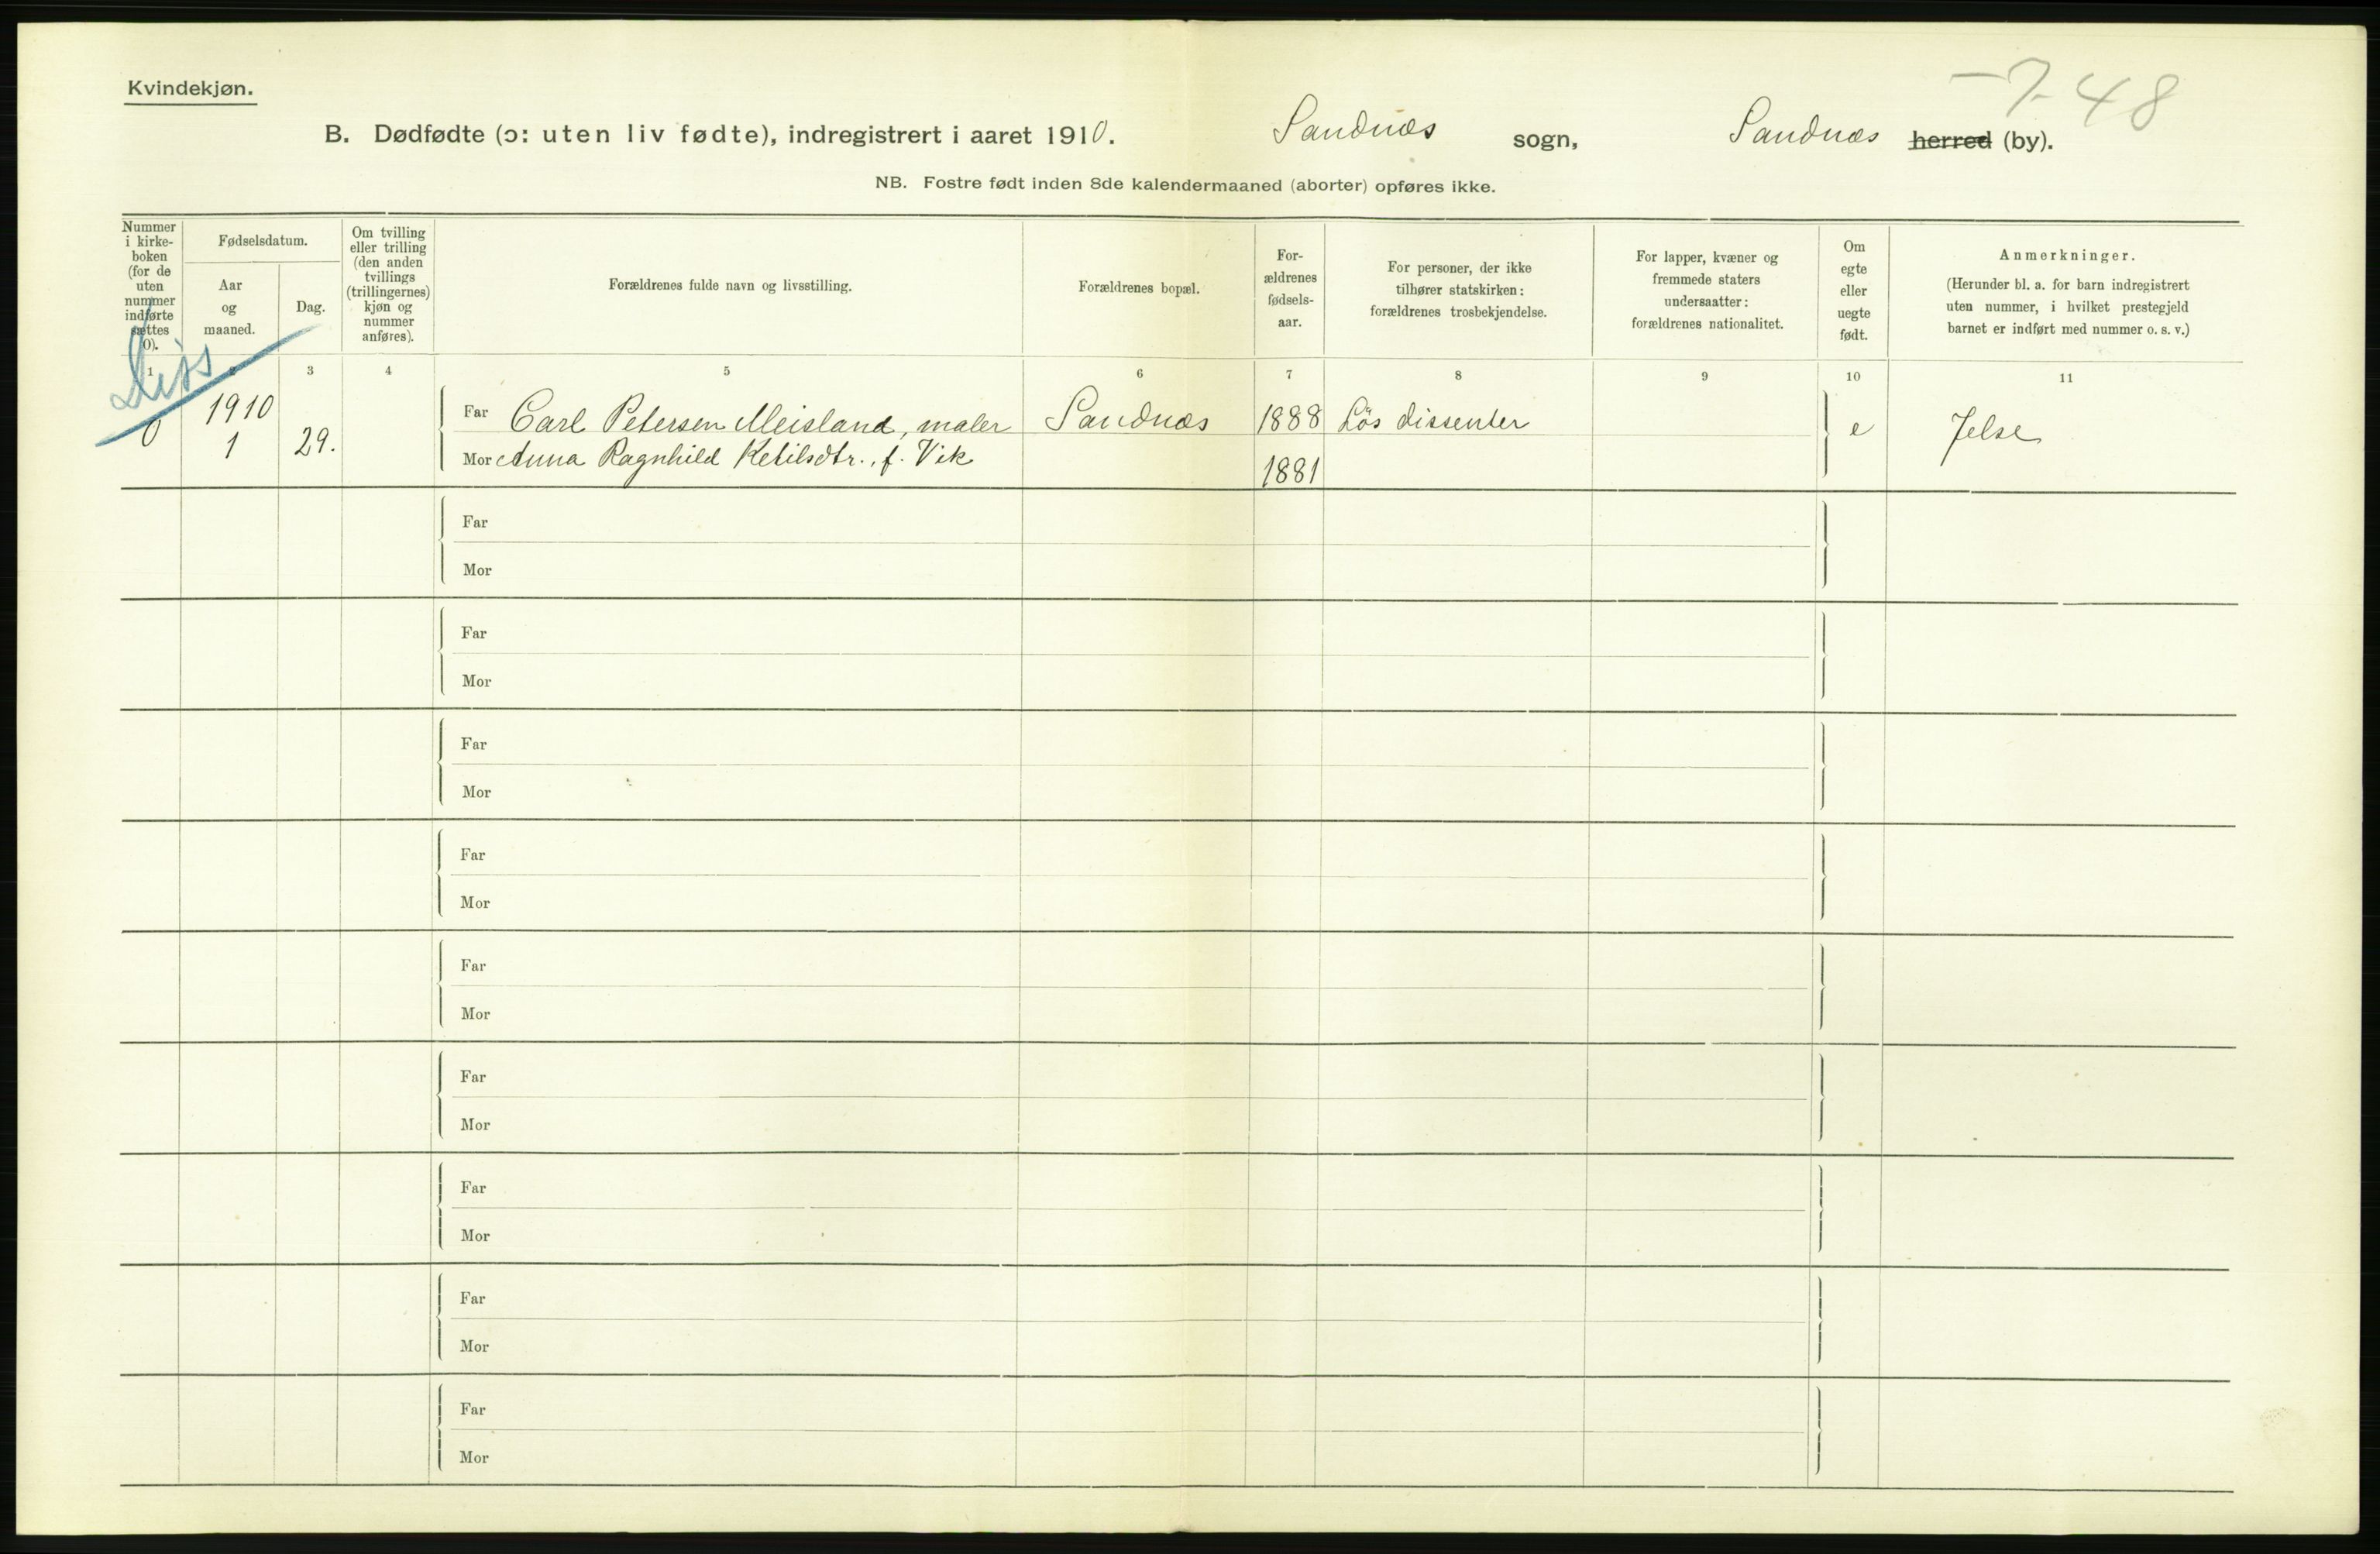 Kvindekjøn.
-7-48
B. Dødfødte (ɔ: uten liv fødte), indregistrert i aaret 1910. Sandnæs sogn, Sandnæs herred (by).
NB. Fostre født inden 8de kalendermaaned (aborter) opføres ikke.
Nummer
i kirke-
boken
(for de
uten
nummer
indførte
sættes
0).
Fødselsdatum.
Aar
og
maaned.
Dag.
Om tvilling
eller trilling
(den anden
tvillings
(trillingernes)
kjøn og
nummer
anføres).
Forældrenes fulde navn og livsstilling.
Forældrenes bopæl.
For-
ældrenes
fødsels-
aar.
For personer, der ikke
tilhører statskirken:
forældrenes trosbekjendelse.
For lapper, kvæner og
fremmede staters
undersaatter:
forældrenes nationalitet.
Om
egte
eller
uegte
født.
Anmerkninger.
(Herunder bl. a. for barn indregistrert
uten nummer, i hvilket prestegjeld
barnet er indført med nummer o. s. v.)
1 2 3 4 5 6 7 8 9 10 11
Diss
0 1910 1 29. Far Carl Petersen Meisland, maler Sandnæs 1888 Løs dissenter e Jelse
Mor Anna Ragnhild Ketilsdtr., f. Vik 1881
Far
Mor
Far
Mor
Far
Mor
Far
Mor
Far
Mor
Far
Mor
Far
Mor
Far
Mor
Far
Mor